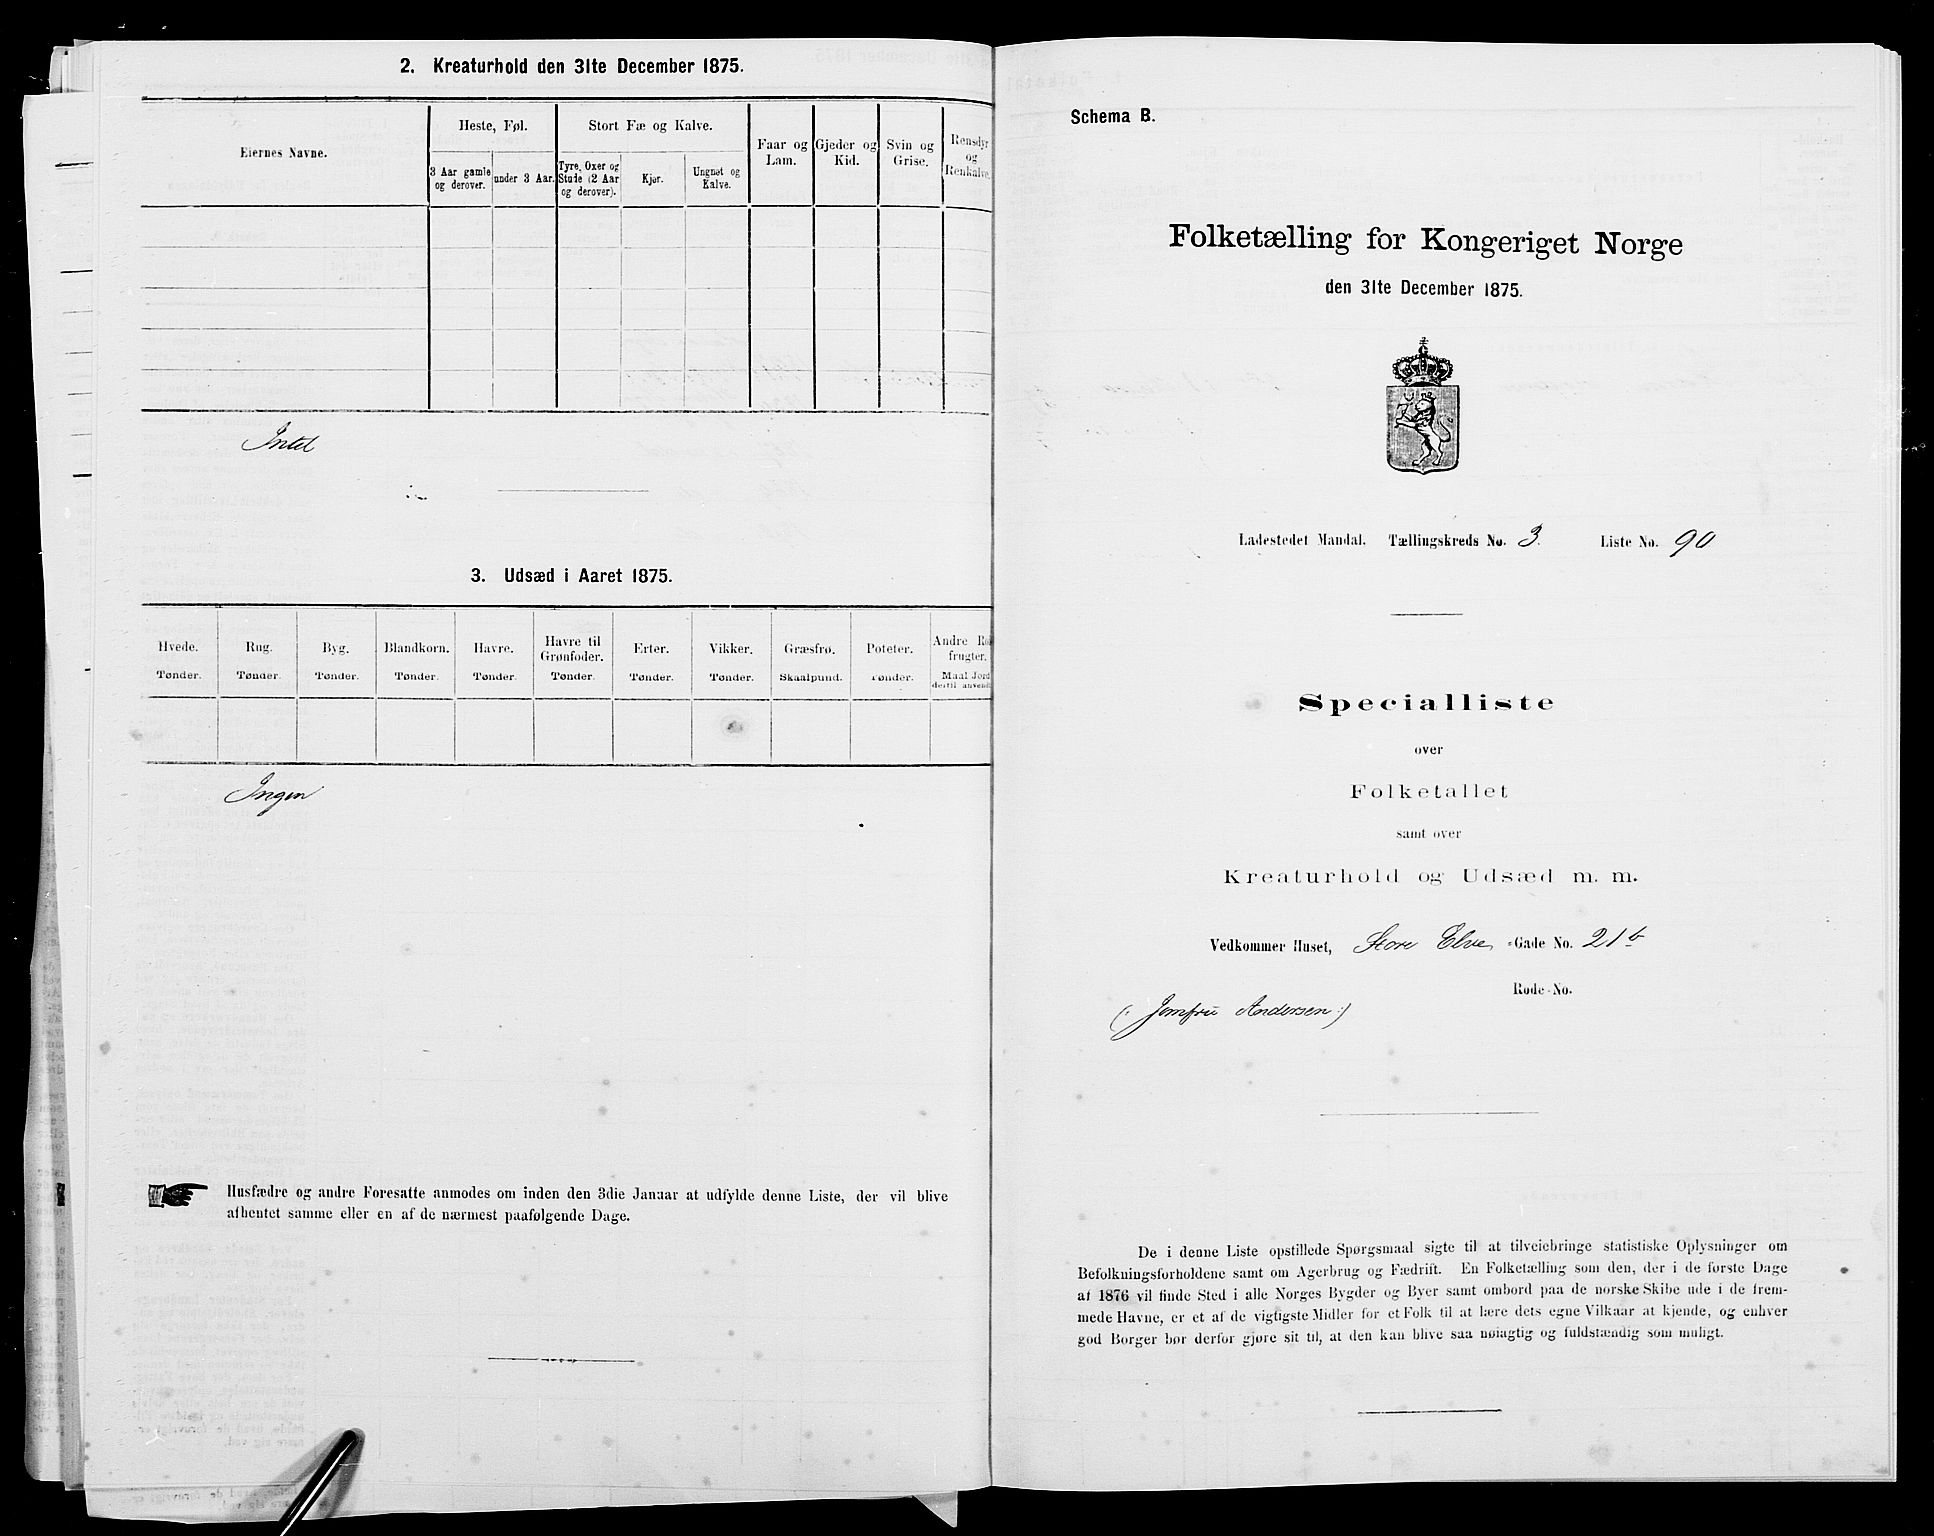 2. Kreaturhold den 31te December 1875.
Eiernes Navne.
Heste, Føl.
Stort Fæ og Kalve.
Faar og
Lam.
Gjeder og
Kid.
Svin og
Grise.
Rensdyr
og
Renkalve.
3 Aar gamle
og derover.
under 3 Aar.
Tyre, Oxer og
Stude (2 Aar
og derover).
Kjør.
Ungnøt og
Kalve.
Intet
3. Udsæd i Aaret 1875.
Hvede.
Tønder.
Rug.
Tønder.
Byg.
Tønder.
Blandkorn.
Tønder.
Havre.
Tønder.
Havre til
Grønfoder.
Tønder.
Erter.
Tønder.
Vikker.
Tønder.
Græsfrø.
Skaalpund.
Poteter.
Tønder.
Andre
frugter.
Maal Jord
dertil
Ingen
Husfædre og andre Foresatte anmodes om inden den 3die Januar at udfylde denne Liste, der vil blive
afhentet samme eller en af de nærmest paafølgende Dage.
Schema B.
Folketælling for Kongeriget Norge
den 31te December 1875.
Ladestedet Mandal. Tællingskreds No. 3. Liste No. 90
Specialliste
over
Folketallet
samt over
Kreaturhold og Udsæd m. m.
Vedkommer Huset, Store Elve-Gade No. 21b
Rode-No.
(: Jomfru Andersen :)
De i denne Liste opstillede Spørgsmaal sigte til at tilveiebringe statistiske Oplysninger om
Befolkningsforholdene samt om Agerbrug og Fædrift. En Folketælling som den, der i de første Dage
af 1876 vil finde Sted i alle Norges Bygder og Byer samt ombord paa de norske Skibe ude i de frem-
mede Havne, er et af de vigtigste Midler for et Folk til at lære dets egne Vilkaar at kjende, og enhver
god Borger bør derfor gjøre sit til, at den kan blive saa nøiagtig og fuldstændig som muligt.